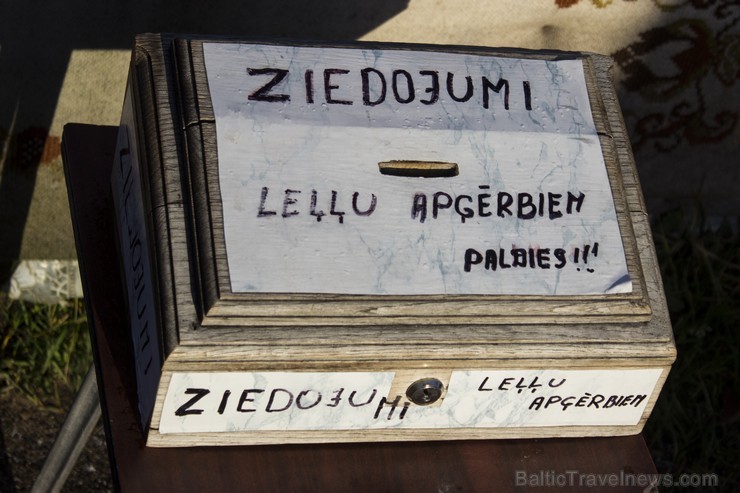 ZIEDOJUMI
LEĻĻU APĢĒRBIEM
PALDIES!!!
ZIEDOJUMI
ZIEDOJUMI
LEĻĻU
APĢĒRBIEM
BalticTravelnews.com